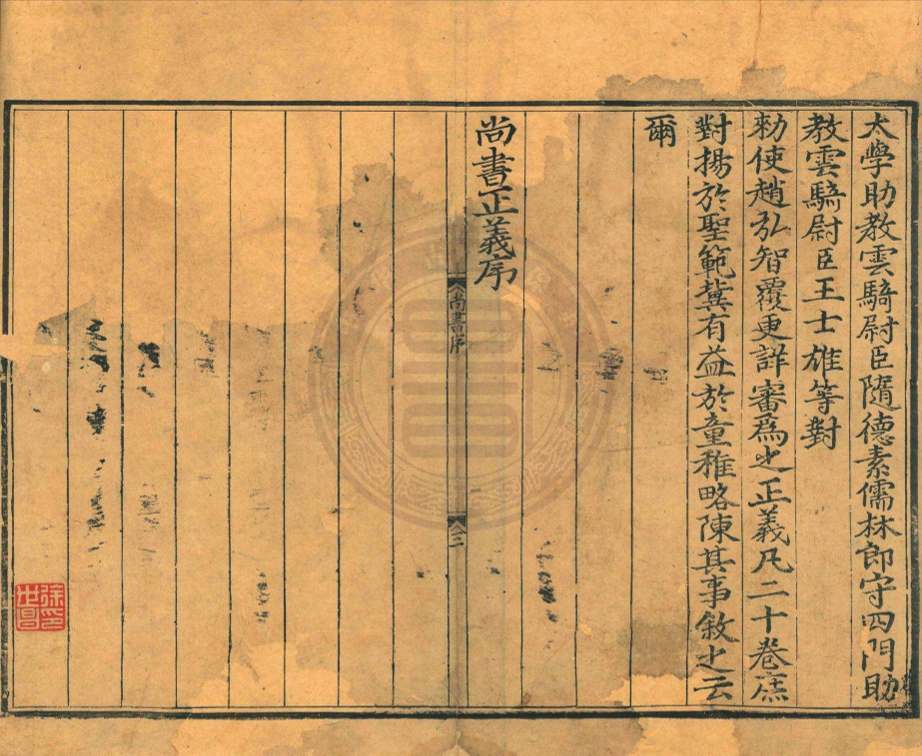 太學助教雲騎尉臣隨德素儒林郎守四門助
教雲騎尉臣王士雄等對
勑使趙弘智覆更詳審爲之正義凡二十卷庶
對揚於聖範冀有益於童稚略陳其事敘之云
爾
尚書正義序
尚書序
二
徐世昌印